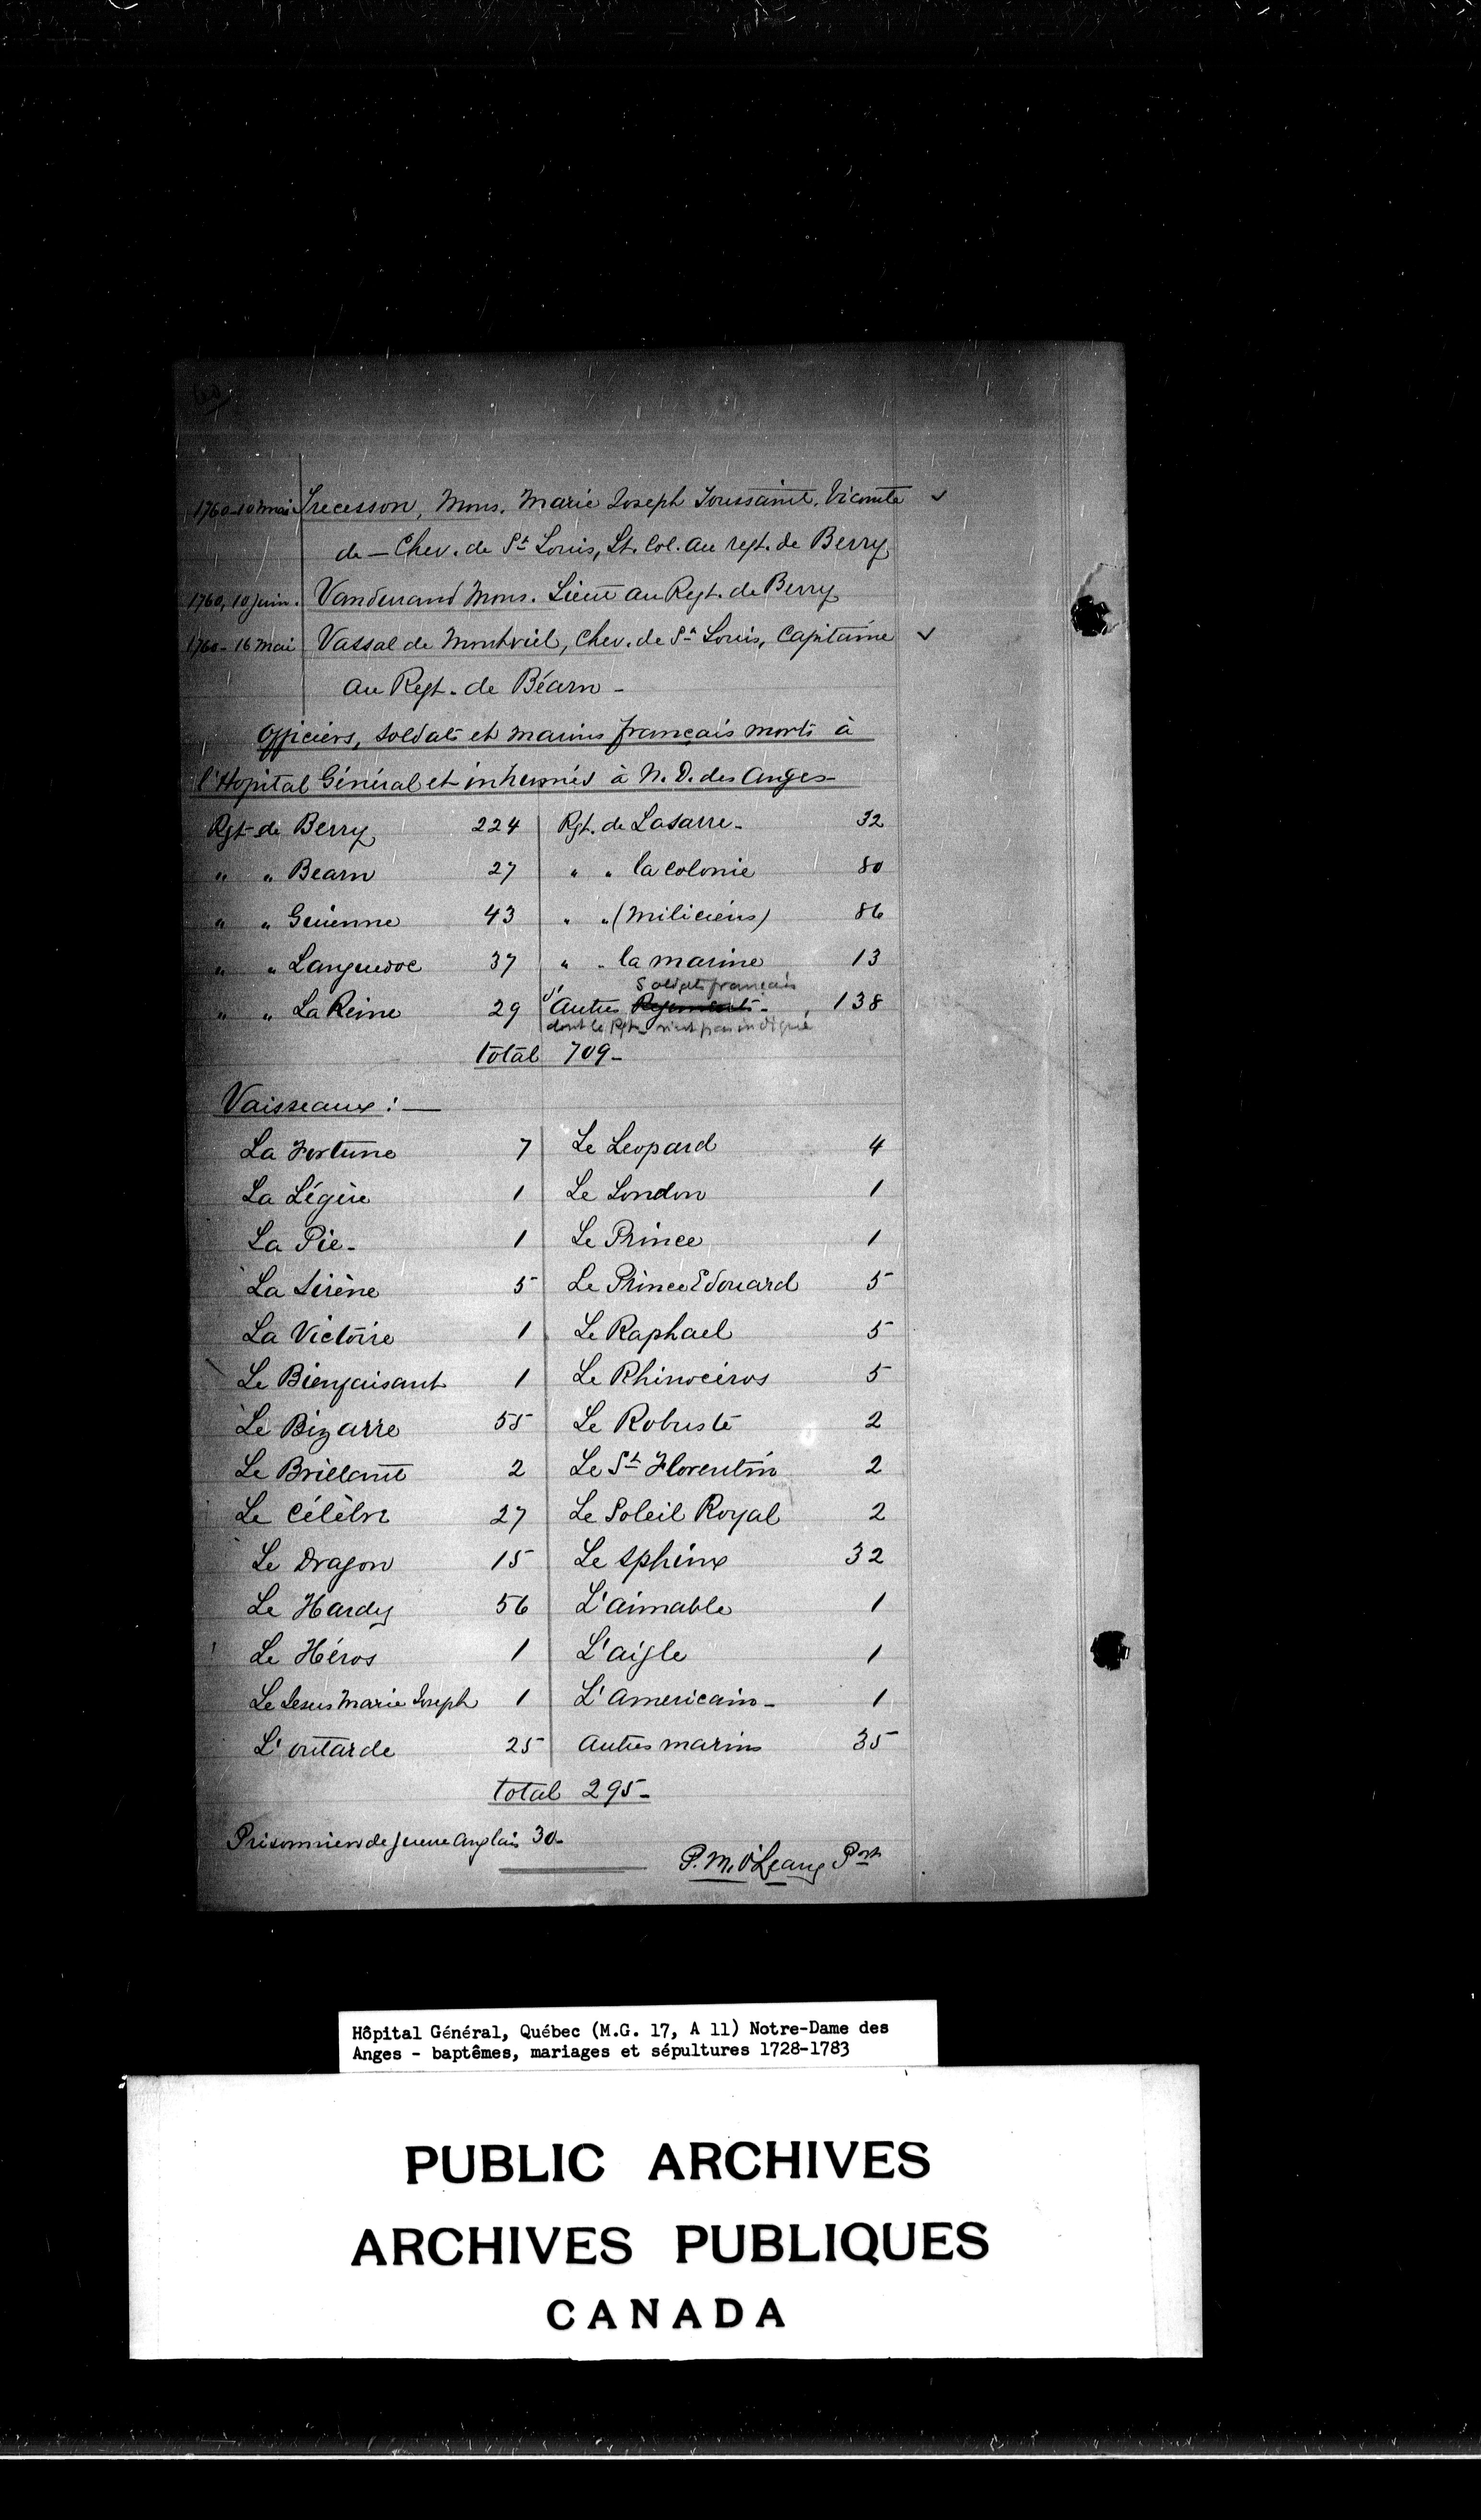 60
1760-10 mai Trecesson, Mons. Marie Joseph Toussaint, Vicomte ✓
de — Chev. de St Louis, Lt. Col. au regt. de Berry
1760, 10 juin. Vandurand Mons. Lieut au Regt. de Berry
1760 - 16 mai Vassal de Montviel, Chev. de St Louis, Capitaine ✓
au Regt. de Béarn -
Officiers, soldats et marins français morts à
l'Hopital Général et inhumés à N. D. des Anges -
Rgt de Berry 224 Rgt. de Lasarre - 32
" " Bearn 27 " " la colonie 80
" " Guienne 43 " " (Miliciens) 86
" " Languedoc 37 " " la marine 13
soldats français
" " La Reine 29 d'Autres Regiments - 138
dont le Rgt. n'est pas indiqué
total 709 -
Vaisseaux : —
La Fortune 7 Le Leopard 4
La Légère 1 Le London 1
La Pie - 1 Le Prince 1
La Sirène 5 Le Prince Edouard 5
La Victoire 1 Le Raphael 5
Le Bienfaisant 1 Le Rhinoceros 5
Le Bizarre 55 Le Robuste 2
Le Brillant 2 Le St Florentin 2
Le Célèbre 27 Le Soleil Royal 2
Le Dragon 15 Le Sphinx 32
Le Hardy 56 L'aimable 1
Le Héros 1 L'aigle 1
Le Jesus Marie Joseph 1 L'Americain - 1
L'outarde 25 autres marins 35
total 295 -
Prisonniers de guerre anglais 30 -
P. M. O'Leary Ptr
Hôpital Général, Québec (M.G. 17, A 11) Notre-Dame des
Anges - baptêmes, mariages et sépultures 1728-1783
PUBLIC ARCHIVES
ARCHIVES PUBLIQUES
CANADA